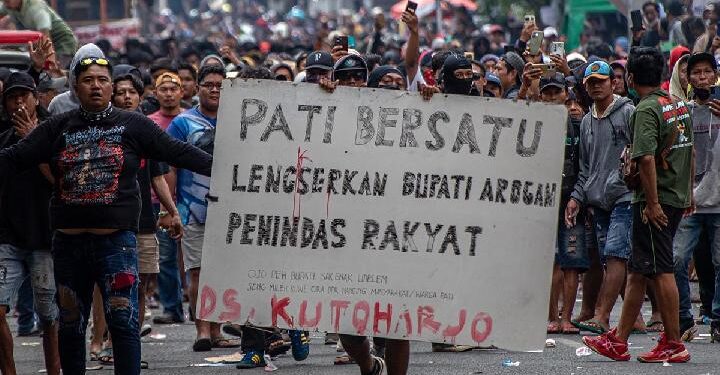 PATI BERSATU
LENGSERKAN BUPATI AROGAN
PENINDAS RAKYAT
OJO PEH BUPATI SAK ENAK UDELEM
DS. KUTOHARJO